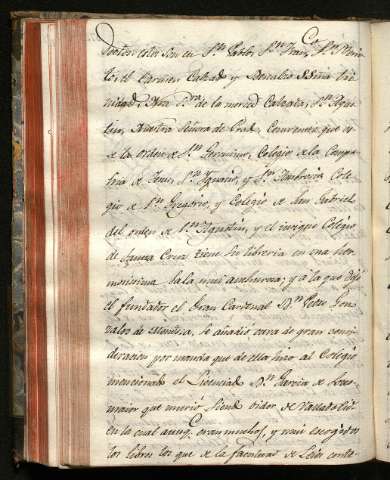 Doctos estos son en Sn. Pablo, Sn. Fran.co, Sn. Benito,
el Carmen Calzado y Descalzo SSma. Tri
nidad, Nra. Sra. de la merced Calzada, Sn. Agus
tin, Nuestra Señora de Prado, Convento que es
de la orden de Sn. Geronimo, Colegio de la Compa
ñia de Jesus, Sn. Ignacio, y Sn. Ambrosio Cole
gio de Sn. Gregorio, y Colegio de San Gabriel
del orden de Sn. Agustin, y el insigne Colegio
de Santa Cruz tiene su libreria en una her
mosisima sala mui anchurosa; y a la que dejó
el fundador el Gran Cardenal Dn. Pedro Gon
zalez de Mendoza, se añadio otra de gran consi
deracion por manda que de ella hizo al Colegio
mencionado el Licenciado Dn. Garcia de
que murió siendo oidor de Valladolid
en la cual aunq. eran muchos, y mui escogidos
los libros los que de la facultad de Leies conte